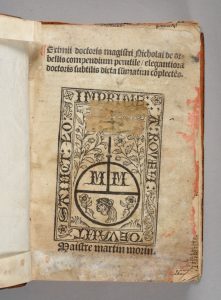 Eximii doctoris magistri Nicholai de or-
bellis compendium perutile / elegantiora
doctoris subtilis dicta summatim complectes.
IMPRIME
A ROVEN
DEVANT
SAINCT LO
M M
Maistre martin morin.